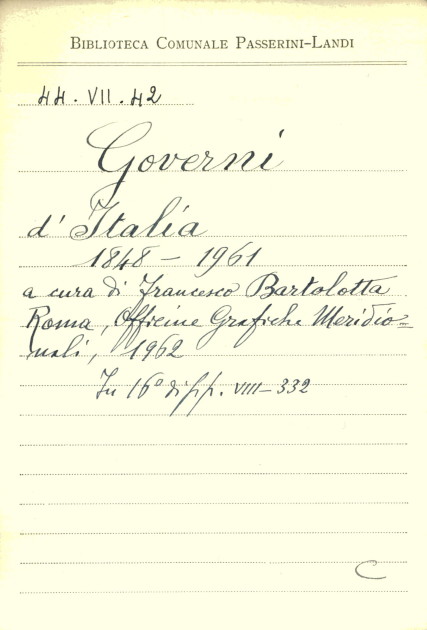 BIBLIOTECA COMUNALE PASSERINI-LANDI
44. VII. 42
Governi
d' Italia
1848 - 1961
a cura di Francesco Bartolotta
Roma, Officine Grafiche Meridio=
nali, 1962
In 16° di pp. VIII-332
C